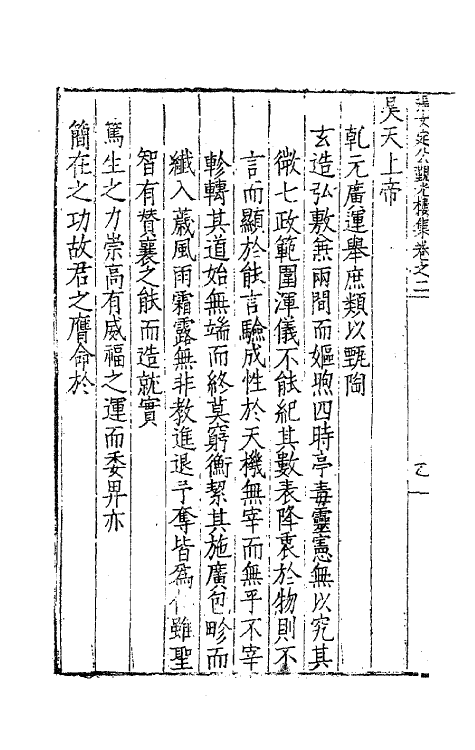 張文定公觀光樓集卷之二
昊天上帝
乹元廣運舉庶類以甄陶
玄造弘敷無兩間而嫗煦四時亭毒靈憲無以究其
微七政範圍渾儀不能紀其數表降衷於物則不
言而顯於能言驗成性於天機無宰而無乎不宰
軫轉其道始無端而終莫窮衡絜其施廣包畛而
纖入薉風雨霜露無非教進退予奪皆爲 雖聖
智有賛襄之能而造就實
篤生之力崇高有威福之運而委畀亦
簡在之功故君之膺命於